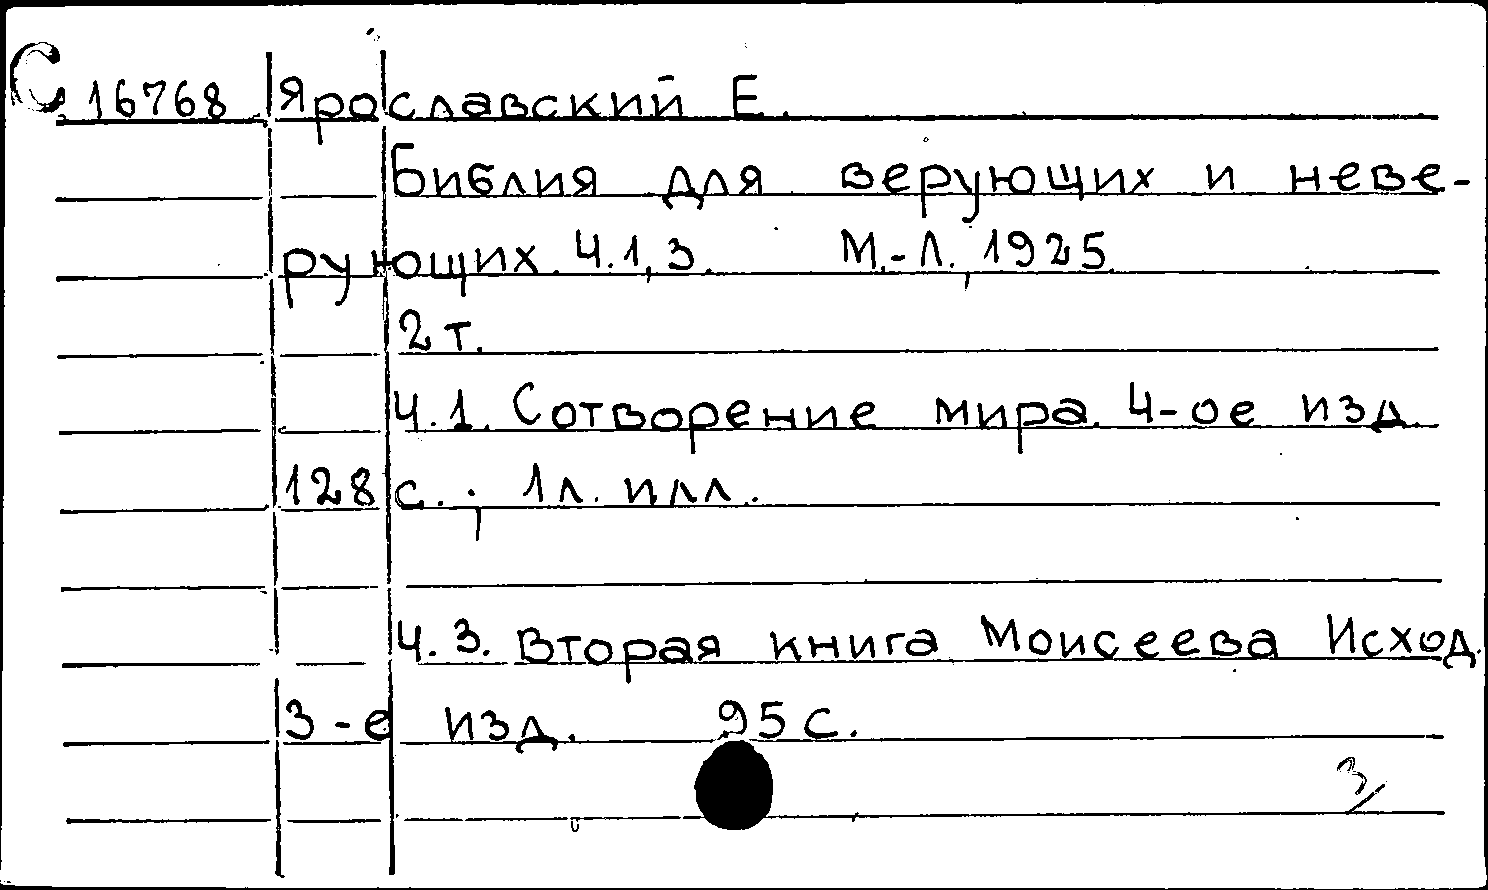 С 16768 Ярославский Е.
Библия для верующих и неве-
рующих. Ч.1,3. М.-Л., 1925.
2 т.
Ч.1. Сотворение мира. 4-ое изд.
128 с., 1л. илл.
Ч.3. Вторая книга Моисеева Исход.
3-е изд. 95 с.
3/